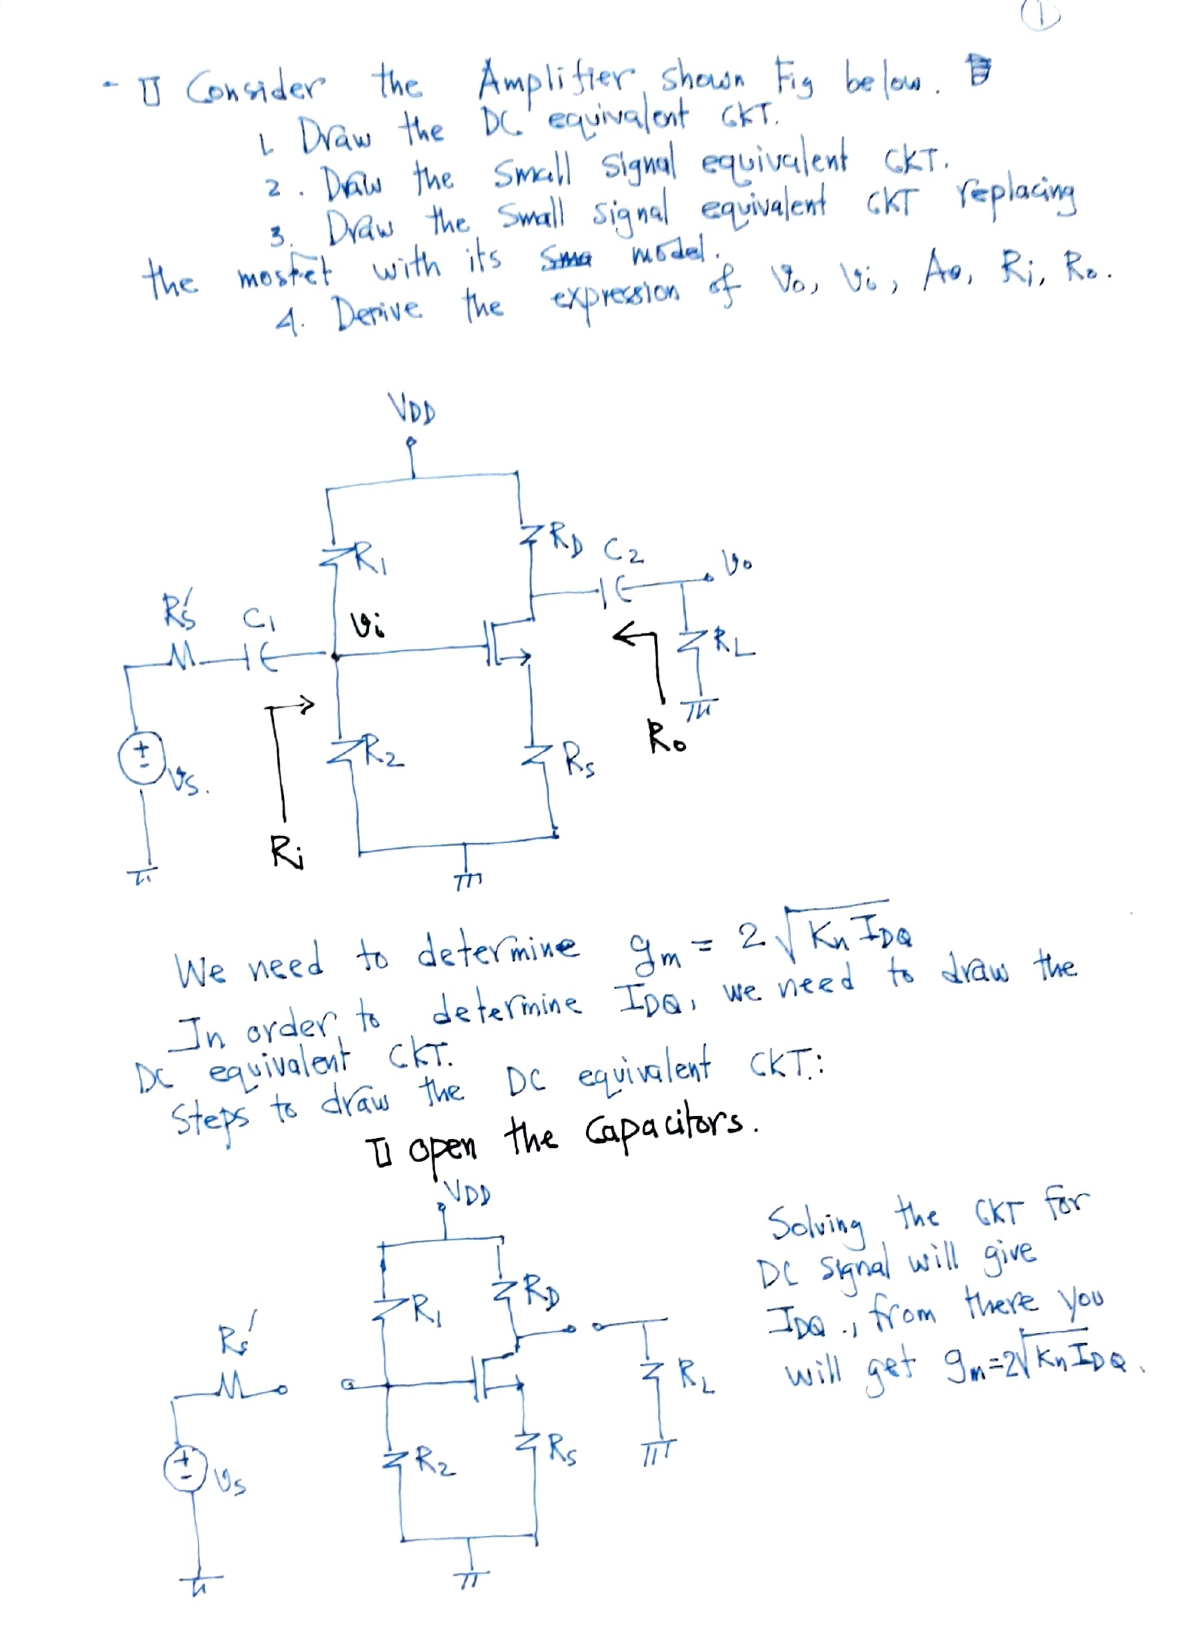 1
- 1] Consider the Amplifier shown Fig below.
1. Draw the DC equivalent CKT.
2. Draw the Small Signal equivalent CKT.
3. Draw the Small signal equivalent CKT replacing
the mosfet with its model.
4. Derive the expression of Vo, Vi, Ao, Ri, Ro.
VDD
R1
RD
C2
Vo
Rs'
C1
Vi
RL
R2
Rs
Ro
Vs.
Ri
We need to determine gm = 2√KnIDQ
In order to determine IDQ, we need to draw the
DC equivalent CKT.
Steps to draw the DC equivalent CKT:
1] open the Capacitors.
VDD
R1
RD
Rs'
RL
R2
Rs
Vs
Solving the CKT for
DC Signal will give
IDQ ., from there you
will get gm=2√KnIDQ.